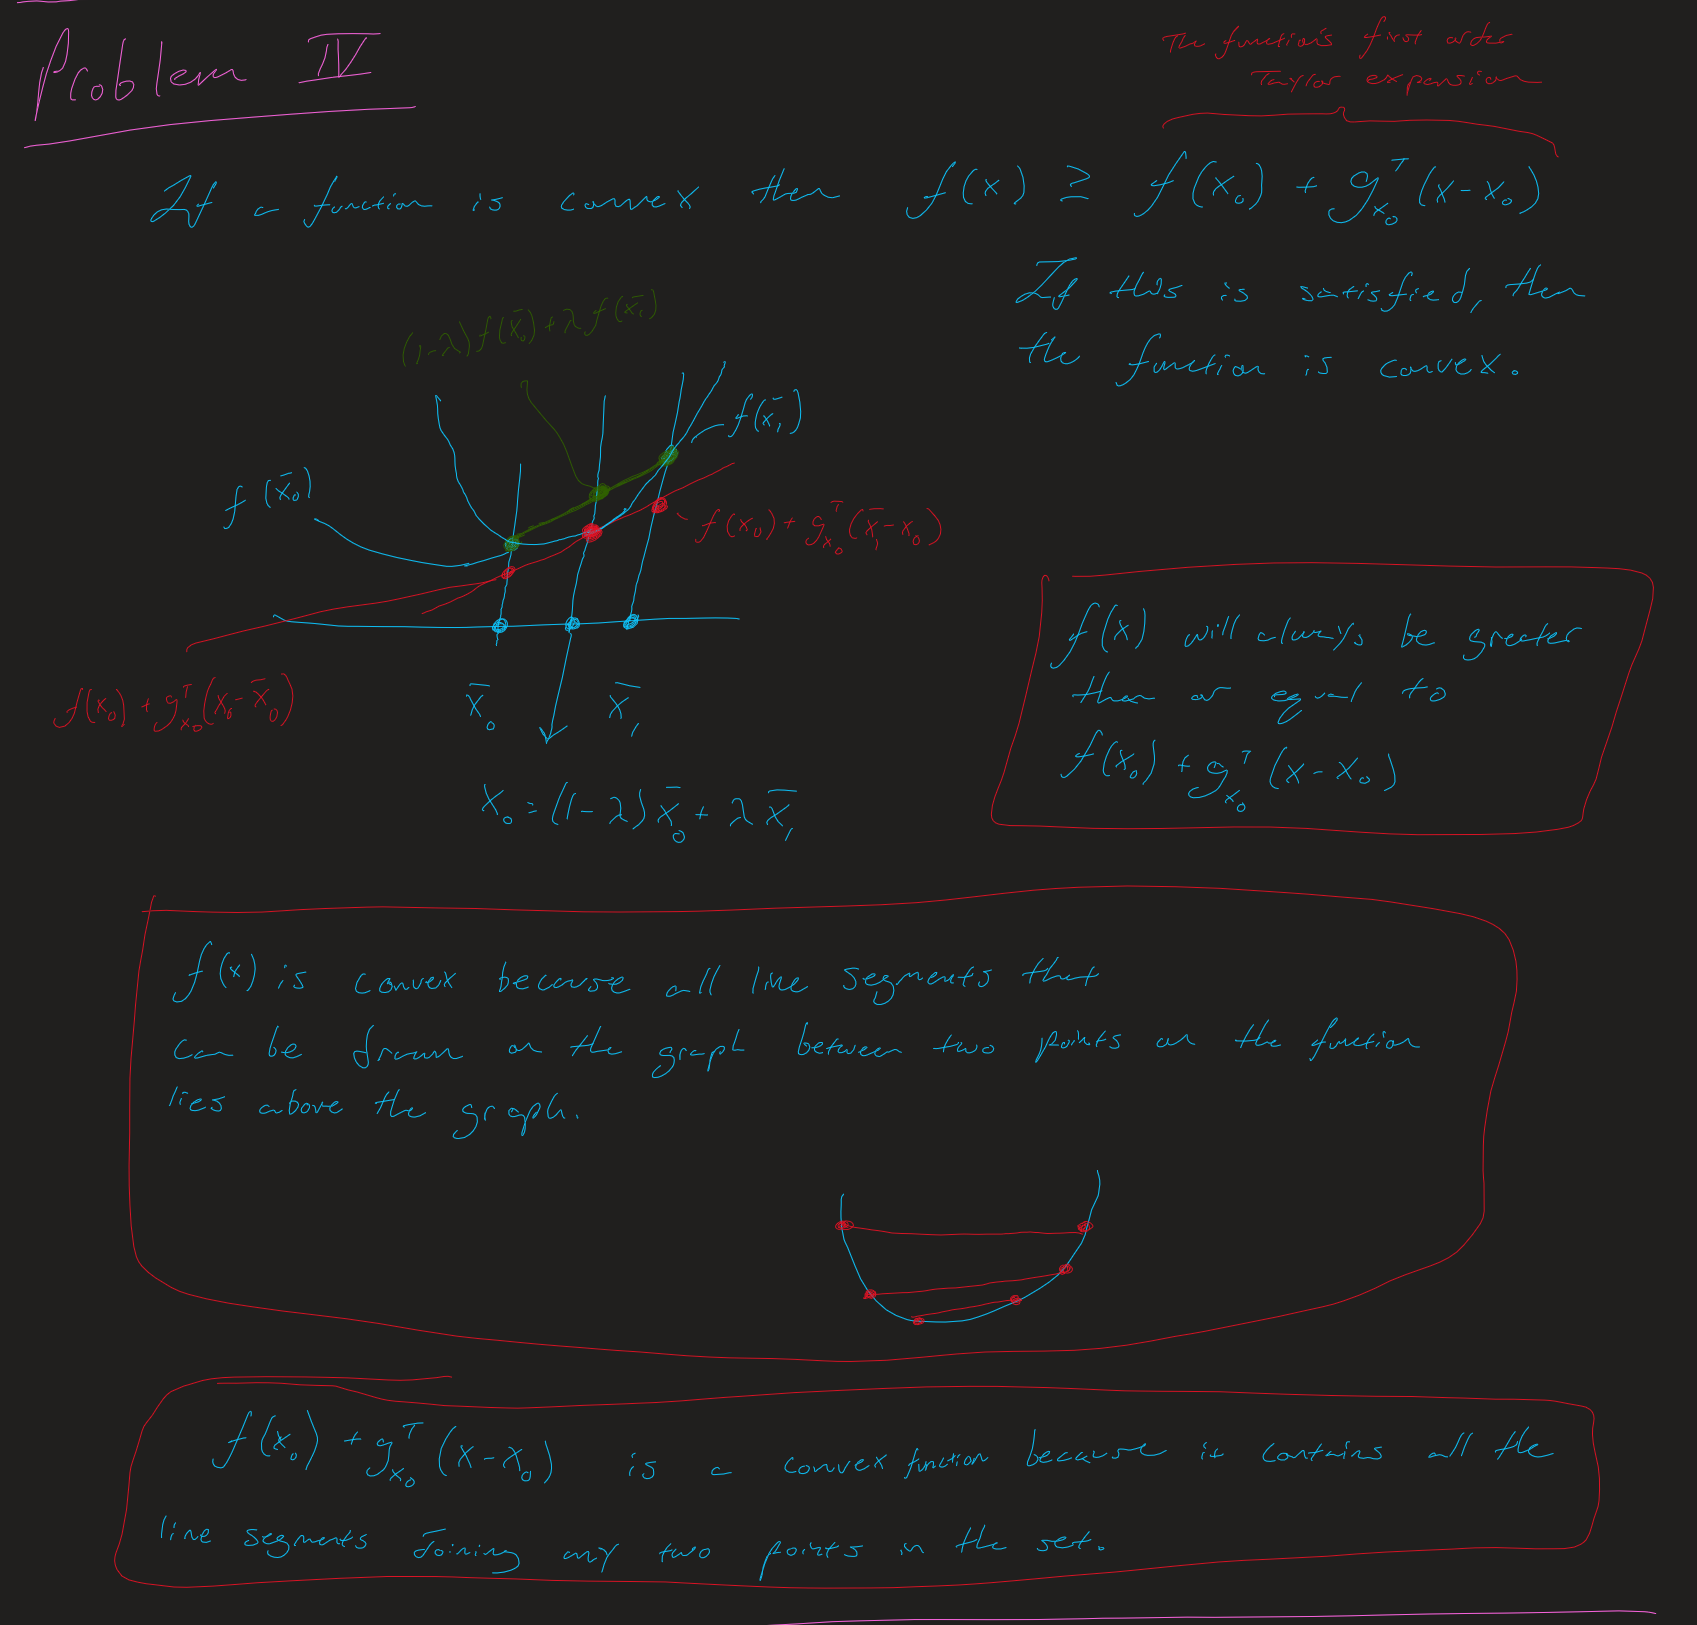 Problem IV
The function's first order
Taylor expansion
If a function is convex then f(x) ≥ f(x₀) + g_{x₀}^T (x - x₀)
If this is satisfied, then
the function is convex.
(1-λ) f(x̄₀) + λ f(x̄₁)
f(x̄₁)
f(x̄₀)
f(x₀) + g_{x₀}^T (x̄₁ - x₀)
f(x₀) + g_{x₀}^T (x₀ - x̄₀)
x̄₀
x̄₁
x₀ = (1-λ) x̄₀ + λ x̄₁
f(x) will always be greater
than or equal to
f(x₀) + g_{x₀}^T (x - x₀)
f(x) is convex because all line segments that
can be drawn on the graph between two points on the function
lies above the graph.
f(x₀) + g_{x₀}^T (x - x₀) is a convex function because it contains all the
line segments Joining any two points in the set.